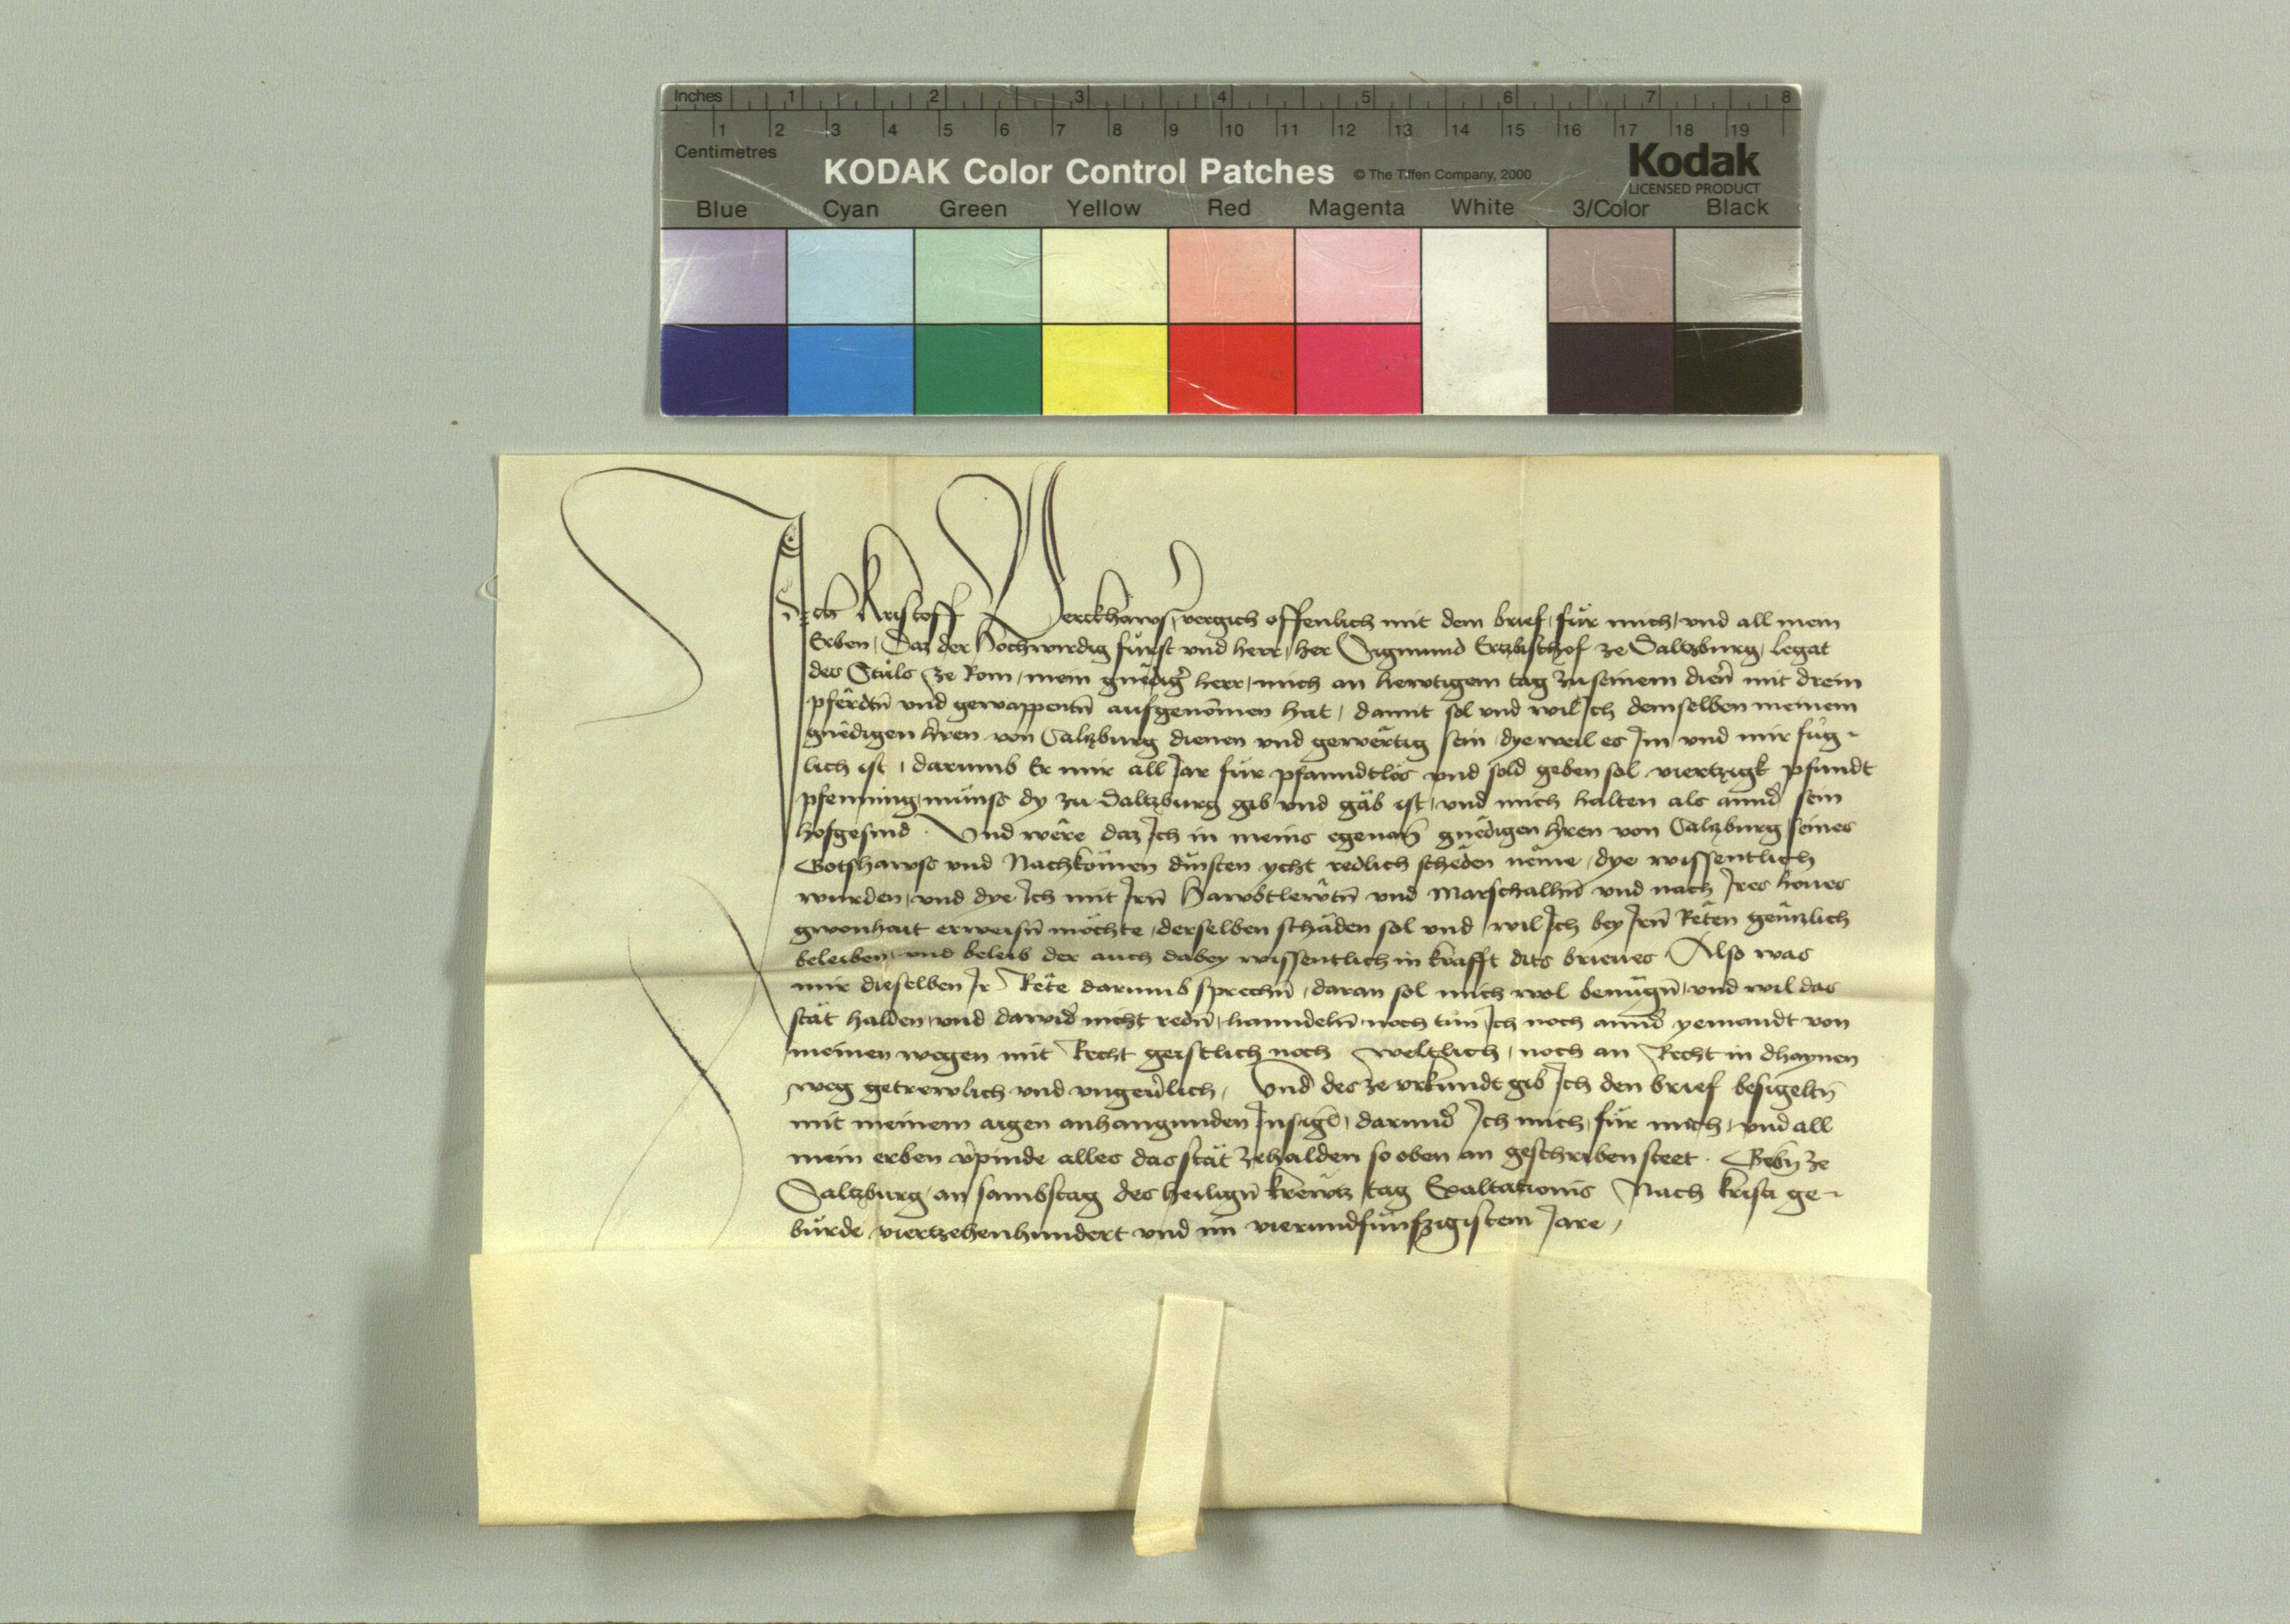 Inches 1 2 3 4 5 6 7 8
1 2 3 4 5 6 7 8 9 10 11 12 13 14 15 16 17 18 19
Centimetres
KODAK Color Control Patches © The Tiffen Company, 2000 Kodak
LICENSED PRODUCT
Blue Cyan Green Yellow Red Magenta White 3/Color Black
Ich Kristoff vergich offenlich mit dem brief, für mich, vnd all mein
Erben, Daz der Hochwirdig fürst vnd herr, her Sigmund Ertzbischof ze Saltzburg, legat
des Stůls ze Rom, mein gnêdigr̃ herr, mich an hewtigem tag zu seinem dien̄ mit drein
pfêrdtn̄ vnd gewappentn̄ aufgenōmen hat, damit sol vnd wil Ich demselben meinem
gnêdigen hr̃ren von Saltzburg dienen vnd gewêrtig sein, dyeweil es Im vnd mir fůg-
lich ist, darumb Er mir all Jar für pfanndtlôs vnd sold geben sol viertzigk pfundt
pfenning, münss dy zu Saltzburg gib vnd gäb ist, vnd mich halten als annd̃ sein
hofgesind. Vnd wêre daz Ich in meins egenan̄ gnêdigen hr̃ren von Saltzburg, seines
Gotshawss vnd Nachkōmen dinsten ycht redlich schêden nême, dye wissentlich
wurden, vnd dye Ich mit Irn̄ Hawbtlewtn̄ vnd Marschalhn̄ vnd nach Ires houes
gwonhait erweisn̄ möchte, derselben schäden sol vnd wil Ich bey Irn̄ Rêten gêntzlich
beleiben, vnd beleib der auch dabey wissentlich in krafft dits brieues. Also was
mir dieselben Ir Rête darumb sprechn̄, daran sol mich wol benůgn̄, vnd wil das
stät halden, vnd dawid̃ nicht redn̄, hanndeln̄ noch tůn, Ich noch annd̃ yemandt von
meinen wegen mit Recht geistlich noch weltlich, noch an Recht in dhaynen
weg getrewlich vnd vngeũlich, Vnd des ze vrkundt gib Ich den brief besigeltn̄
mit meinem aigen anhangunden Insigl̄, darund̃ Ich mich, für mich, vnd all
mein erben ṽpinde alles das stät zehalden so oben an geschriben steet. Gebn̄ ze
Saltzburg, an sambstag des heilign̄ krewtz tag Exaltationis Nach kristi ge-
bůrde viertzehenhundert vnd im vierundfünfzigistem Jare,